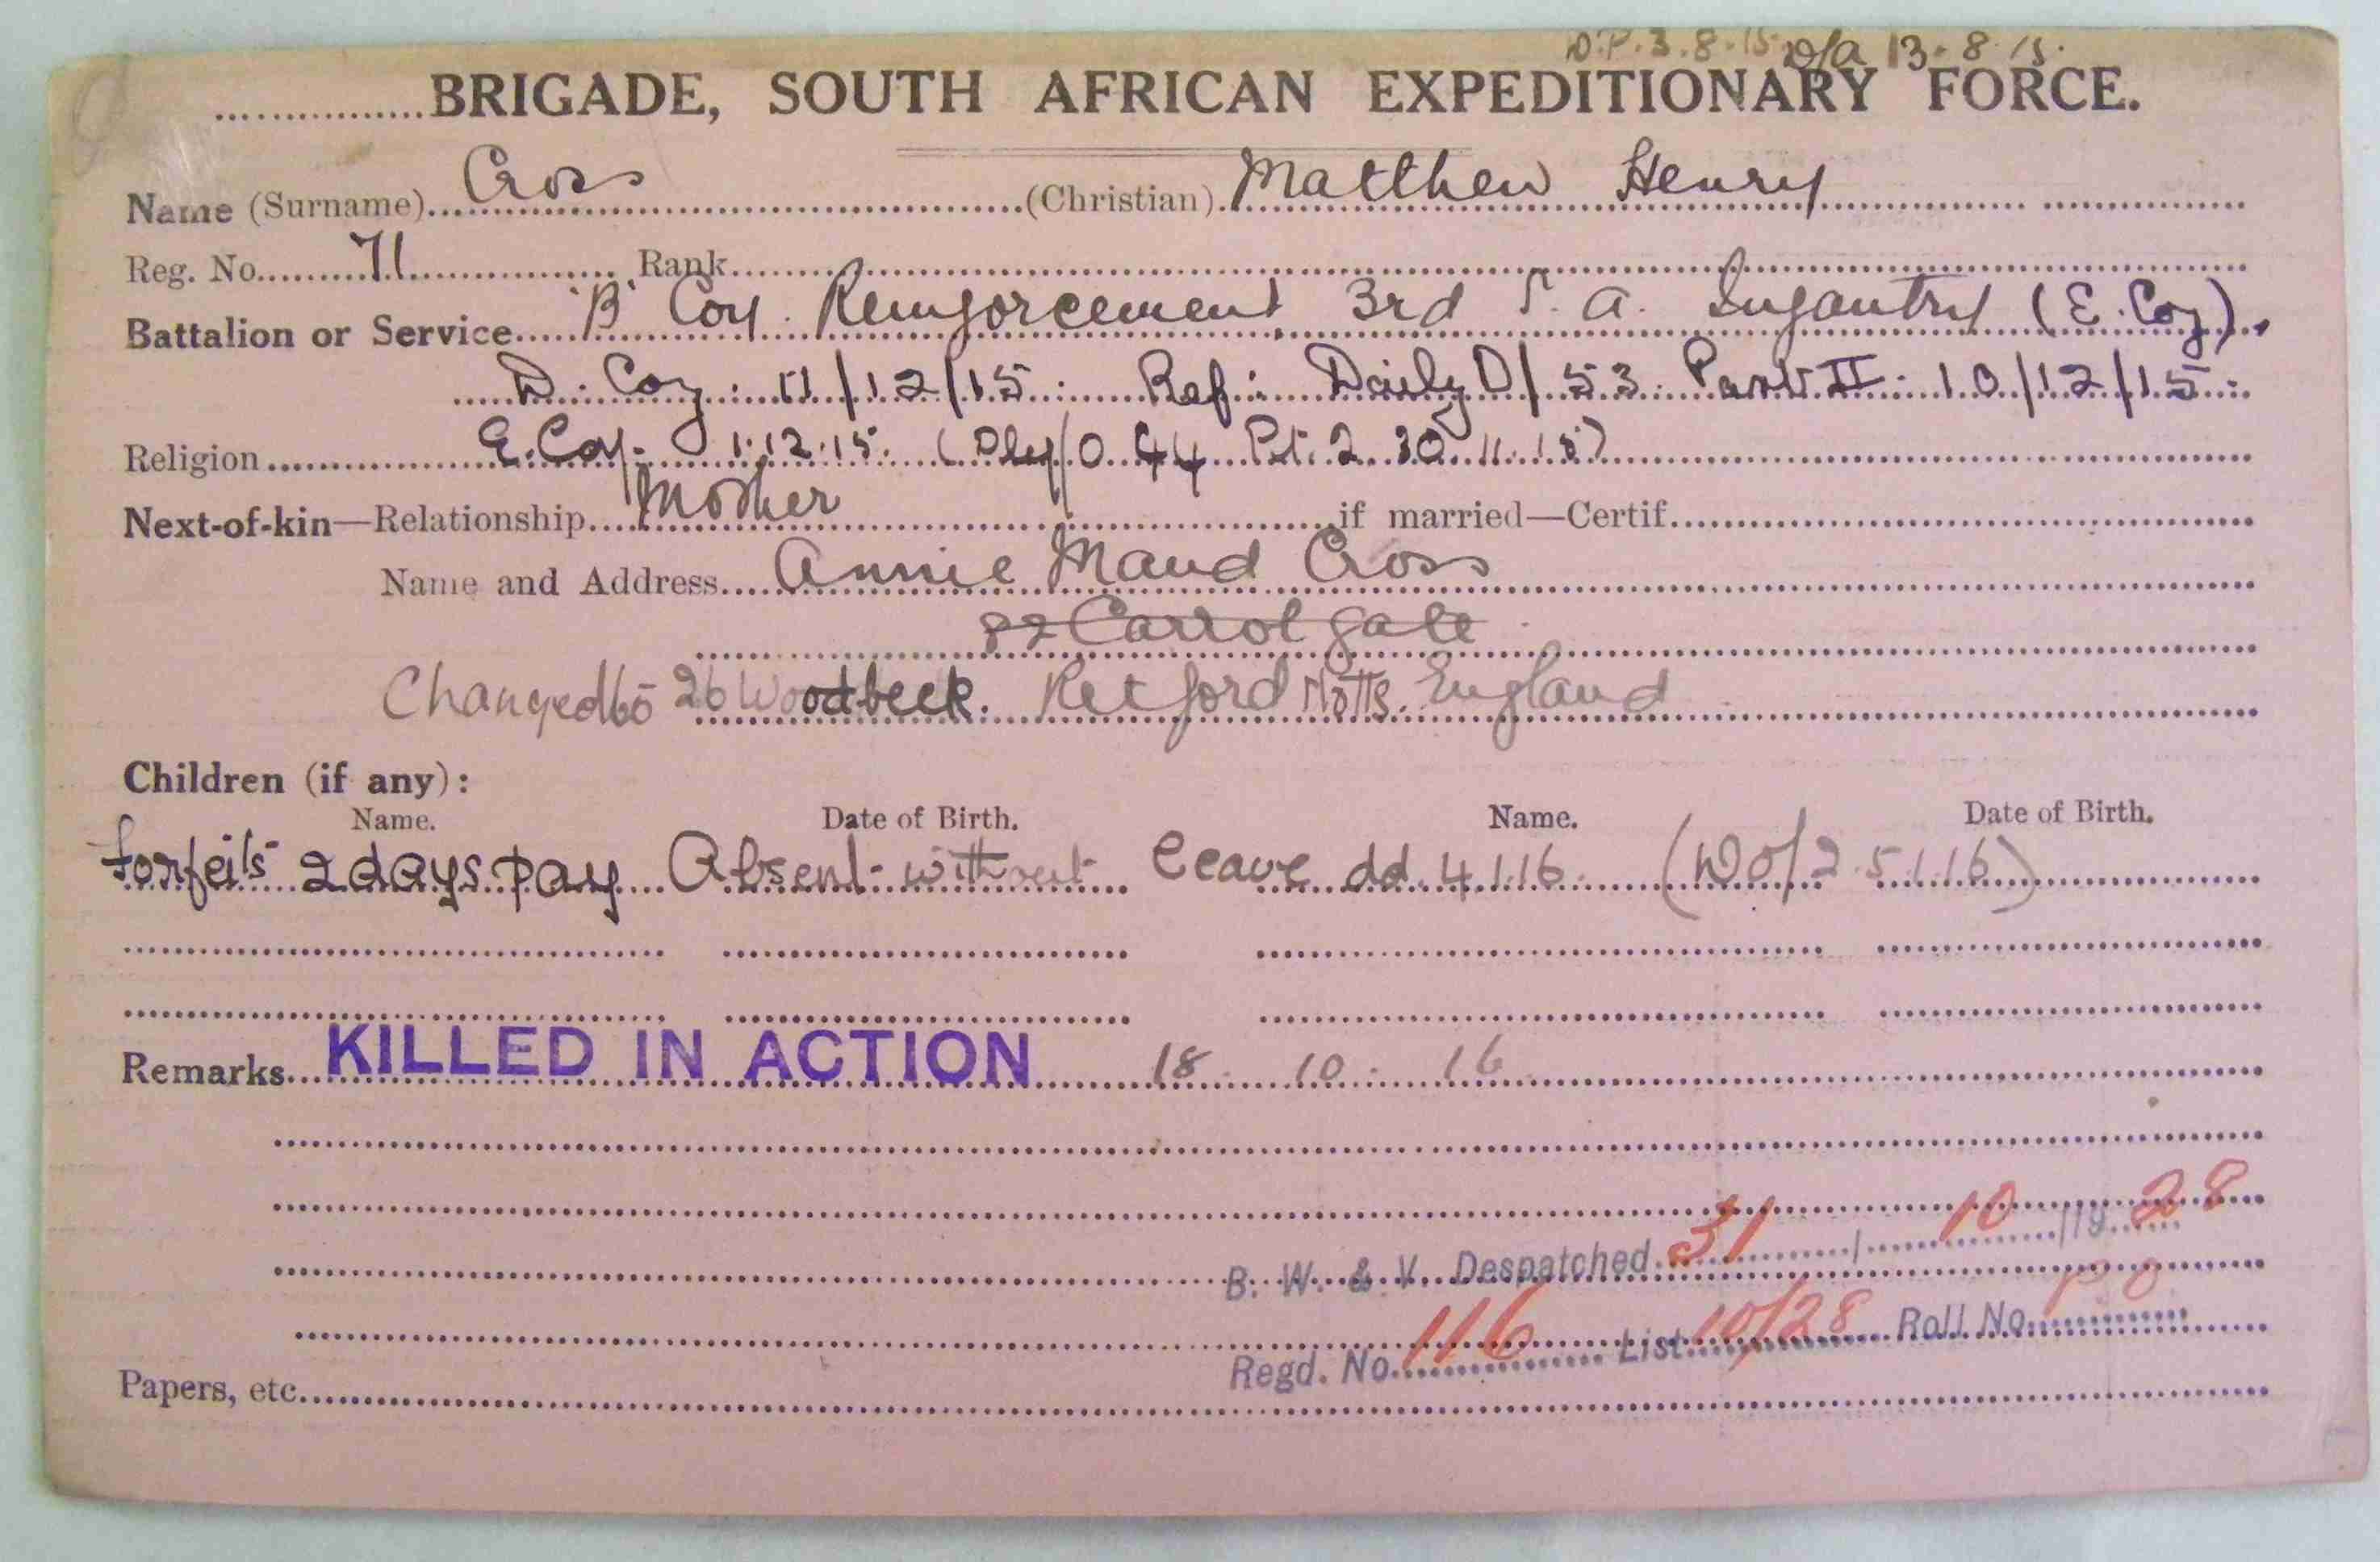 D.P. 3.8.15 D/A 13-8-15.
BRIGADE, SOUTH AFRICAN EXPEDITIONARY FORCE.
Name (Surname) Cross (Christian) Matthew Henry
Reg. No. 71 Rank
Battalion or Service 'B' Coy. Reinforcement 3rd S. A. Infantry (E. Coy).
D. Coy: 11/12/15: Ref: Daily O/53. Part II: 10/12/15:
Religion E. Coy. 1.12.15. (Dly/O 44 Pt. 2 30.11.15)
Next-of-kin—Relationship Mother if married—Certif.
Name and Address Annie Maud Cross
82 Carrol gate
Changed to 26 Woodbeck. Retford Notts. England
Children (if any):
Name. Date of Birth. Name. Date of Birth.
forfeits 2 days pay Absent without leave dd. 4.1.16. (DO/2 5.1.16)
Remarks KILLED IN ACTION 18. 10. 16.
B. W. & V. Despatched 31 / 10 /1928
Regd. No. 116 List 10/28 Roll No.
Papers, etc.